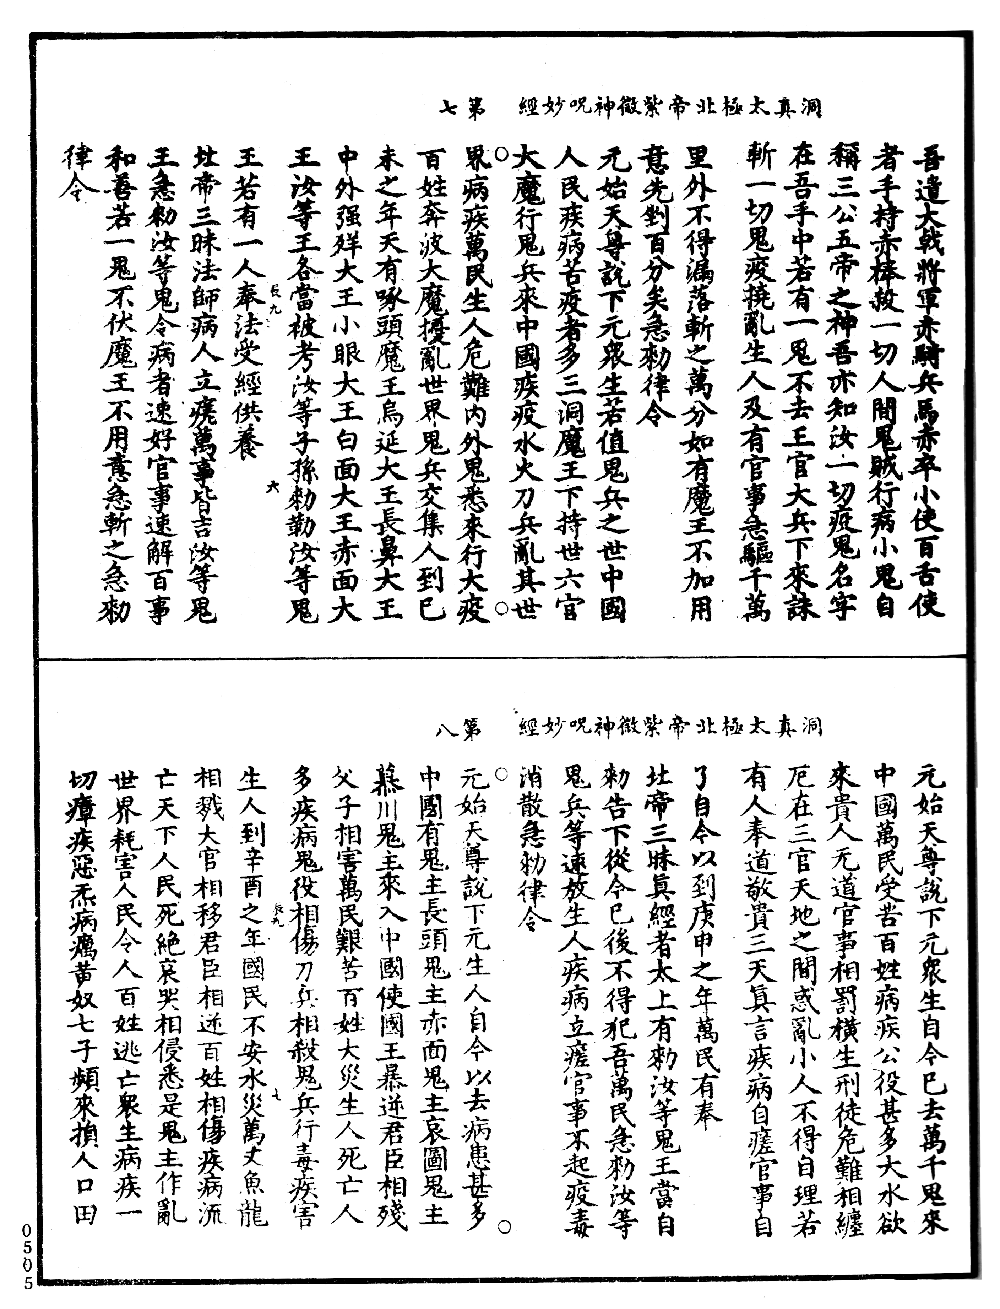 洞真太極北帝紫微神呪妙經　第七
吾遣大戟將軍赤騎兵馬赤卒小使百舌使
者手持赤棒救一切人間鬼賊行病小鬼自
稱三公五帝之神吾亦知汝一切疫鬼名字
在吾手中若有一鬼不去王官大兵下來誅
斬一切鬼疫撓亂生人及有官事急驅千萬
里外不得漏落斬之萬分如有魔王不加用
意先剉百分矣急勑律令
元始天尊說下元衆生若值鬼兵之世中國
人民疾病苦疫者多三洞魔王下持世六宮
大魔行鬼兵來中國疾疫水火刀兵亂其世
界病疾萬民生人危難內外鬼悉來行大疫
百姓奔波大魔擾亂世界鬼兵交集人到巳
未之年天有啄頭魔王烏延大王長鼻大王
中外强殍大王小眼大王白面大王赤面大
王汝等王各當被考汝等子孫勑勤汝等鬼
長九　六
王若有一人奉法受經供養
北帝三昧法師病人立瘥萬事皆吉汝等鬼
王急勑汝等鬼令病者速好官事速解百事
和善若一鬼不伏魔王不用意急斬之急勑
律令
洞真太極北帝紫微神呪妙經　第八
元始天尊說下元衆生自今巳去萬千鬼來
中國萬民受苦百姓病疾公役甚多大水欲
來貴人无道官事相罰橫生刑徒危難相纏
厄在三官天地之間惑亂小人不得自理若
有人奉道敬貴三天眞言疾病自瘥官事自
了自今以到庚申之年萬民有奉
北帝三昧眞經者太上有勑汝等鬼王當自
勑告下從今巳後不得犯吾萬民急勑汝等
鬼兵等速放生人疾病立瘥官事不起疫毒
消散急勑律令
元始天尊說下元生人自今以去病患甚多
中國有鬼主長頭鬼主赤面鬼主哀圖鬼主
慕川鬼主來入中國使國王暴逆君臣相殘
父子相害萬民艱苦百姓大災生人死亡人
多疾病鬼役相傷刀兵相殺鬼兵行毒疾害
長九　七
生人到辛酉之年國民不安水災萬丈魚龍
相戮大官相移君臣相逆百姓相傷疾病流
亡天下人民死絕哀哭相侵悉是鬼主作亂
世界耗害人民令人百姓逃亡衆生病疾一
切瘴疾惡炁病癘黄奴七子頻來損人口田
0505